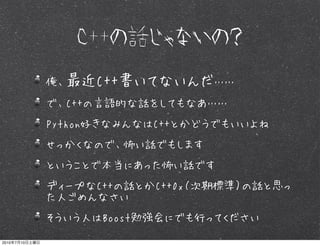 C++の話じゃないの?
俺、最近C++書いてないんだ……
で、C++の言語的な話をしてもなあ……
Python好きなみんなはC++とかどうでもいいよね
せっかくなので、怖い話でもします
ということで本当にあった怖い話です
ディープなC++の話とかC++0x(次期標準)の話と思っ
た人ごめんなさい
そういう人はBoost勉強会にでも行ってください
2010年7月10日土曜日